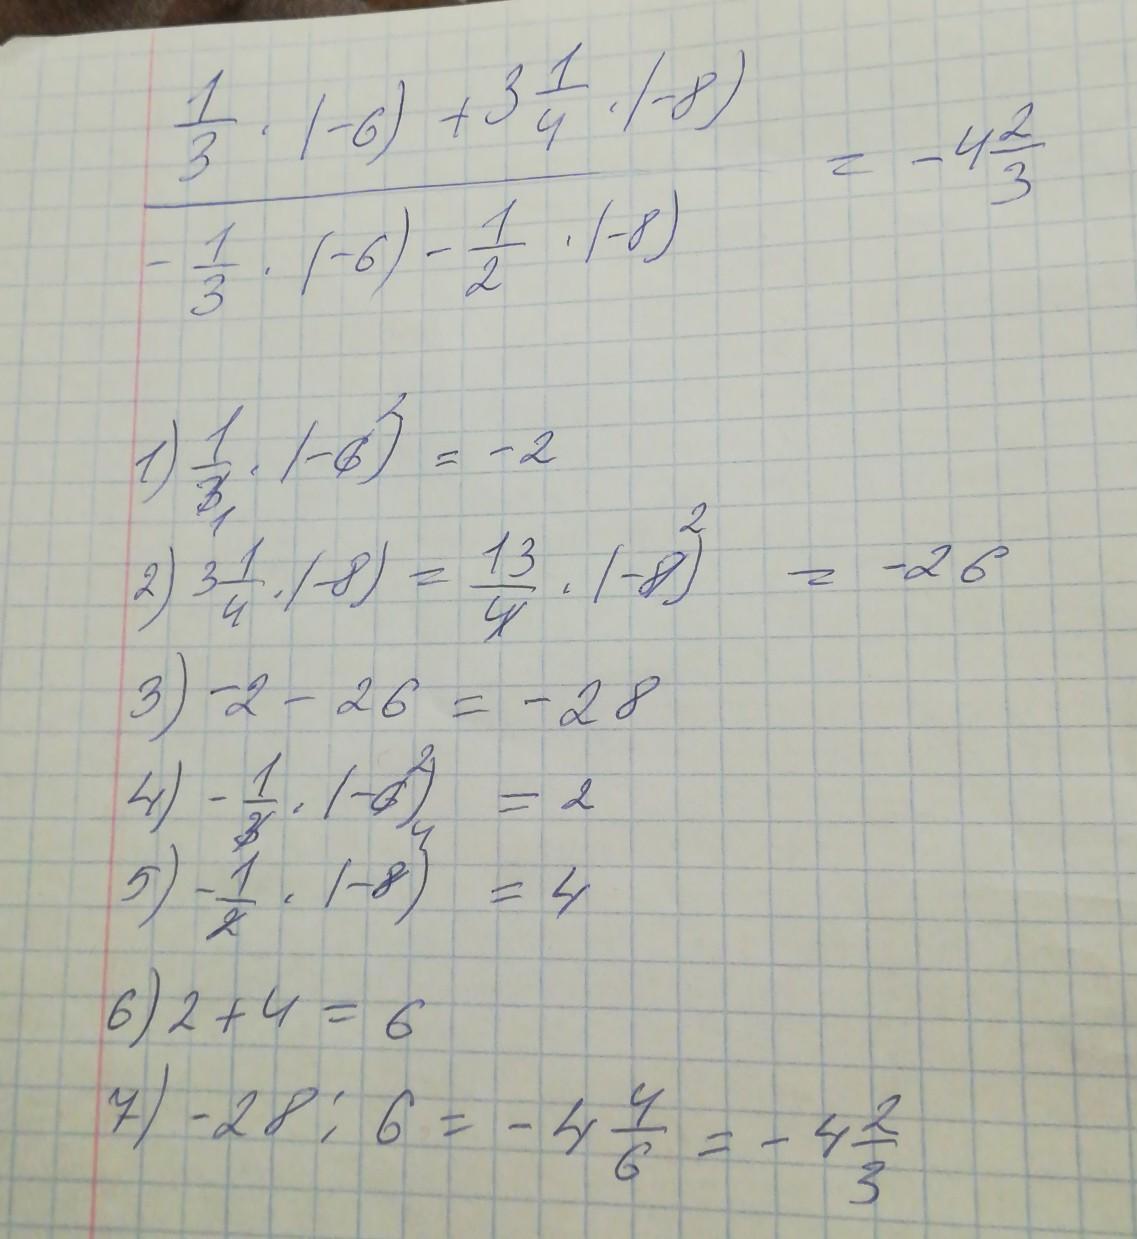 1/3 · (-6) + 3 1/4 · (-8)
= -4 2/3
- 1/3 · (-6) - 1/2 · (-8)
1) 1/3 1 · (-6) 2 = -2
2) 3 1/4 · (-8) = 13/4 · (-8) 2 = -26
3) -2 - 26 = -28
4) - 1/3 · (-6) 2 = 2
5) - 1/2 · (-8) 4 = 4
6) 2 + 4 = 6
7) -28 : 6 = -4 4/6 = -4 2/3